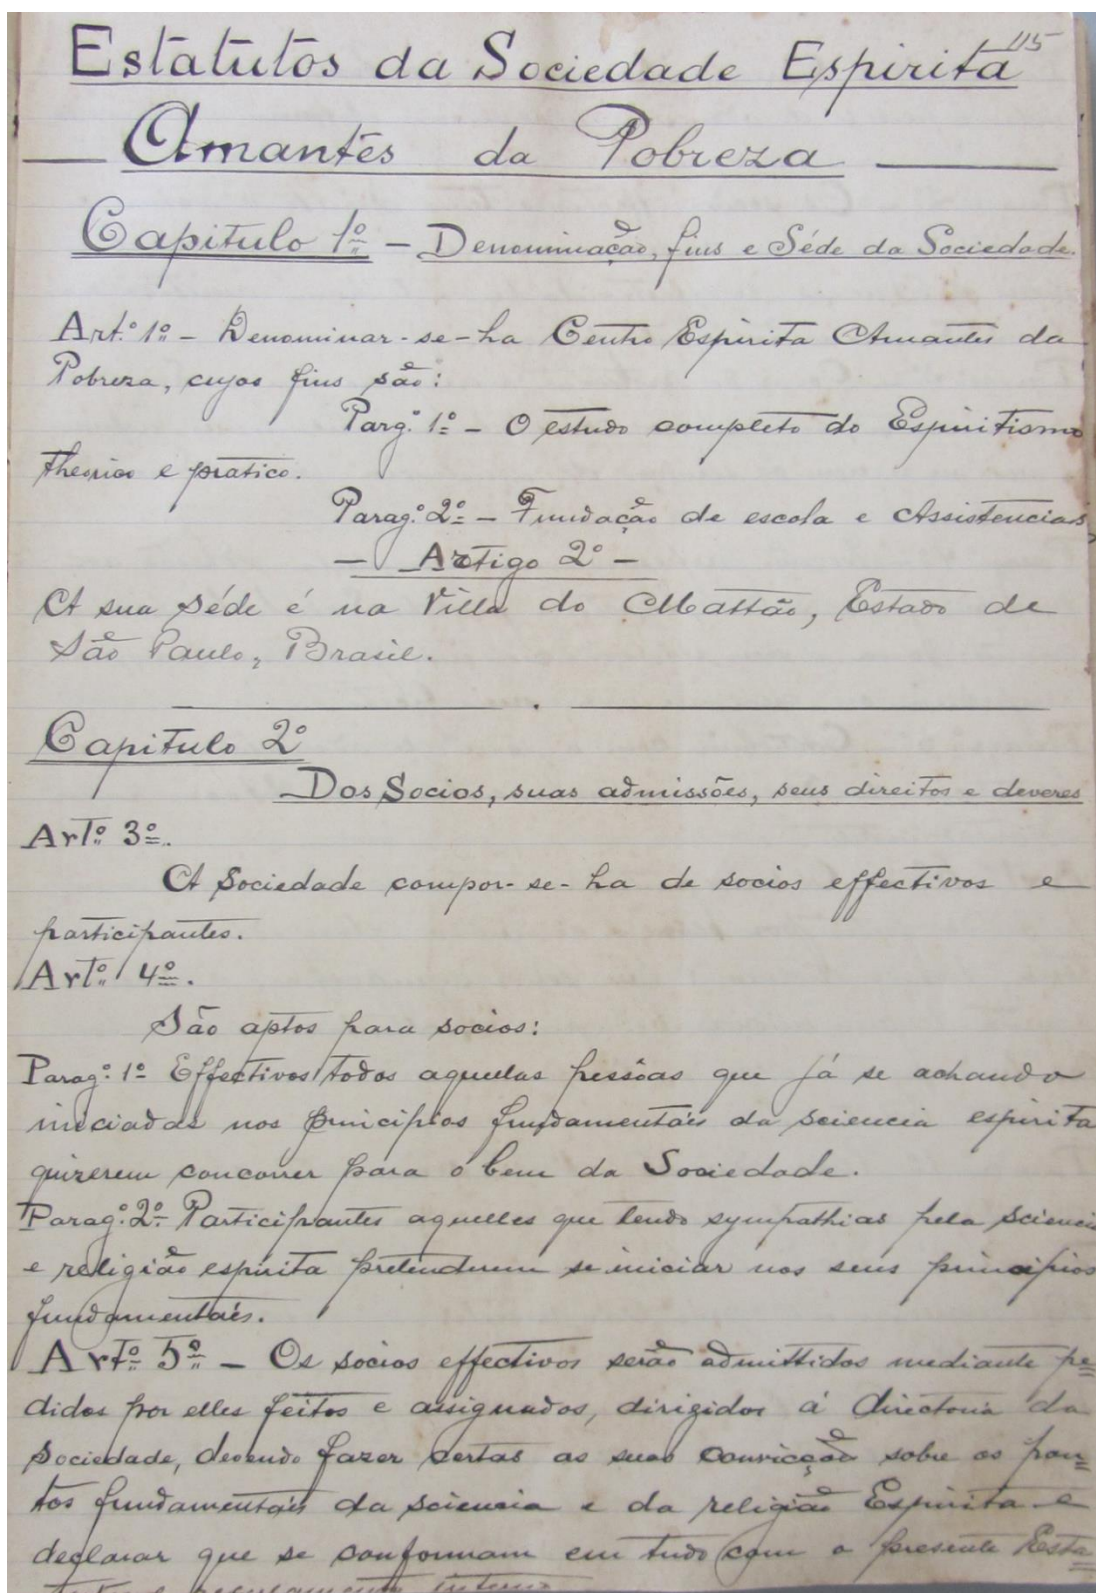 115
Estatutos da Sociedade Espirita
Amantes da Pobreza
Capitulo 1º - Denominação, fins e Séde da Sociedade.
Art.º 1º - Denominar-se-ha Centro Espirita Amantes da
Pobreza, cujos fins são:
Parg.º 1º - O estudo completo do Espiritismo
theorico e pratico.
Parag.º 2º - Fundação de escola e Assistencias,
- Artigo 2º -
A sua séde é na Villa do Mattão, Estado de
São Paulo, Brasil.
Capitulo 2º
Dos Socios, suas admissões, seus direitos e deveres
Artº 3º.
A Sociedade compor-se-ha de socios effectivos e
participantes.
Artº 4º.
São aptos para socios:
Parag.º 1º Effectivos todos aquellas pessôas que já se achando
iniciadas nos principios fundamentáis da sciencia espirita
quizerem concorrer para o bem da Sociedade.
Parag.º 2º Participantes aquelles que tendo sympathias pela sciencia
e religião espirita pretenderem se iniciar nos seus principios
fundamentáis.
Artº 5º - Os socios effectivos serão admittidos mediante pe=
didos por elles feitos e assignados, dirigidos á directoria da
Sociedade, devendo fazer certas as suas convicção sobre os pon=
tos fundamentáis da sciencia e da religião Espirita e
declarar que se conformam em tudo com o presente Esta=
tuto e regulamento interno